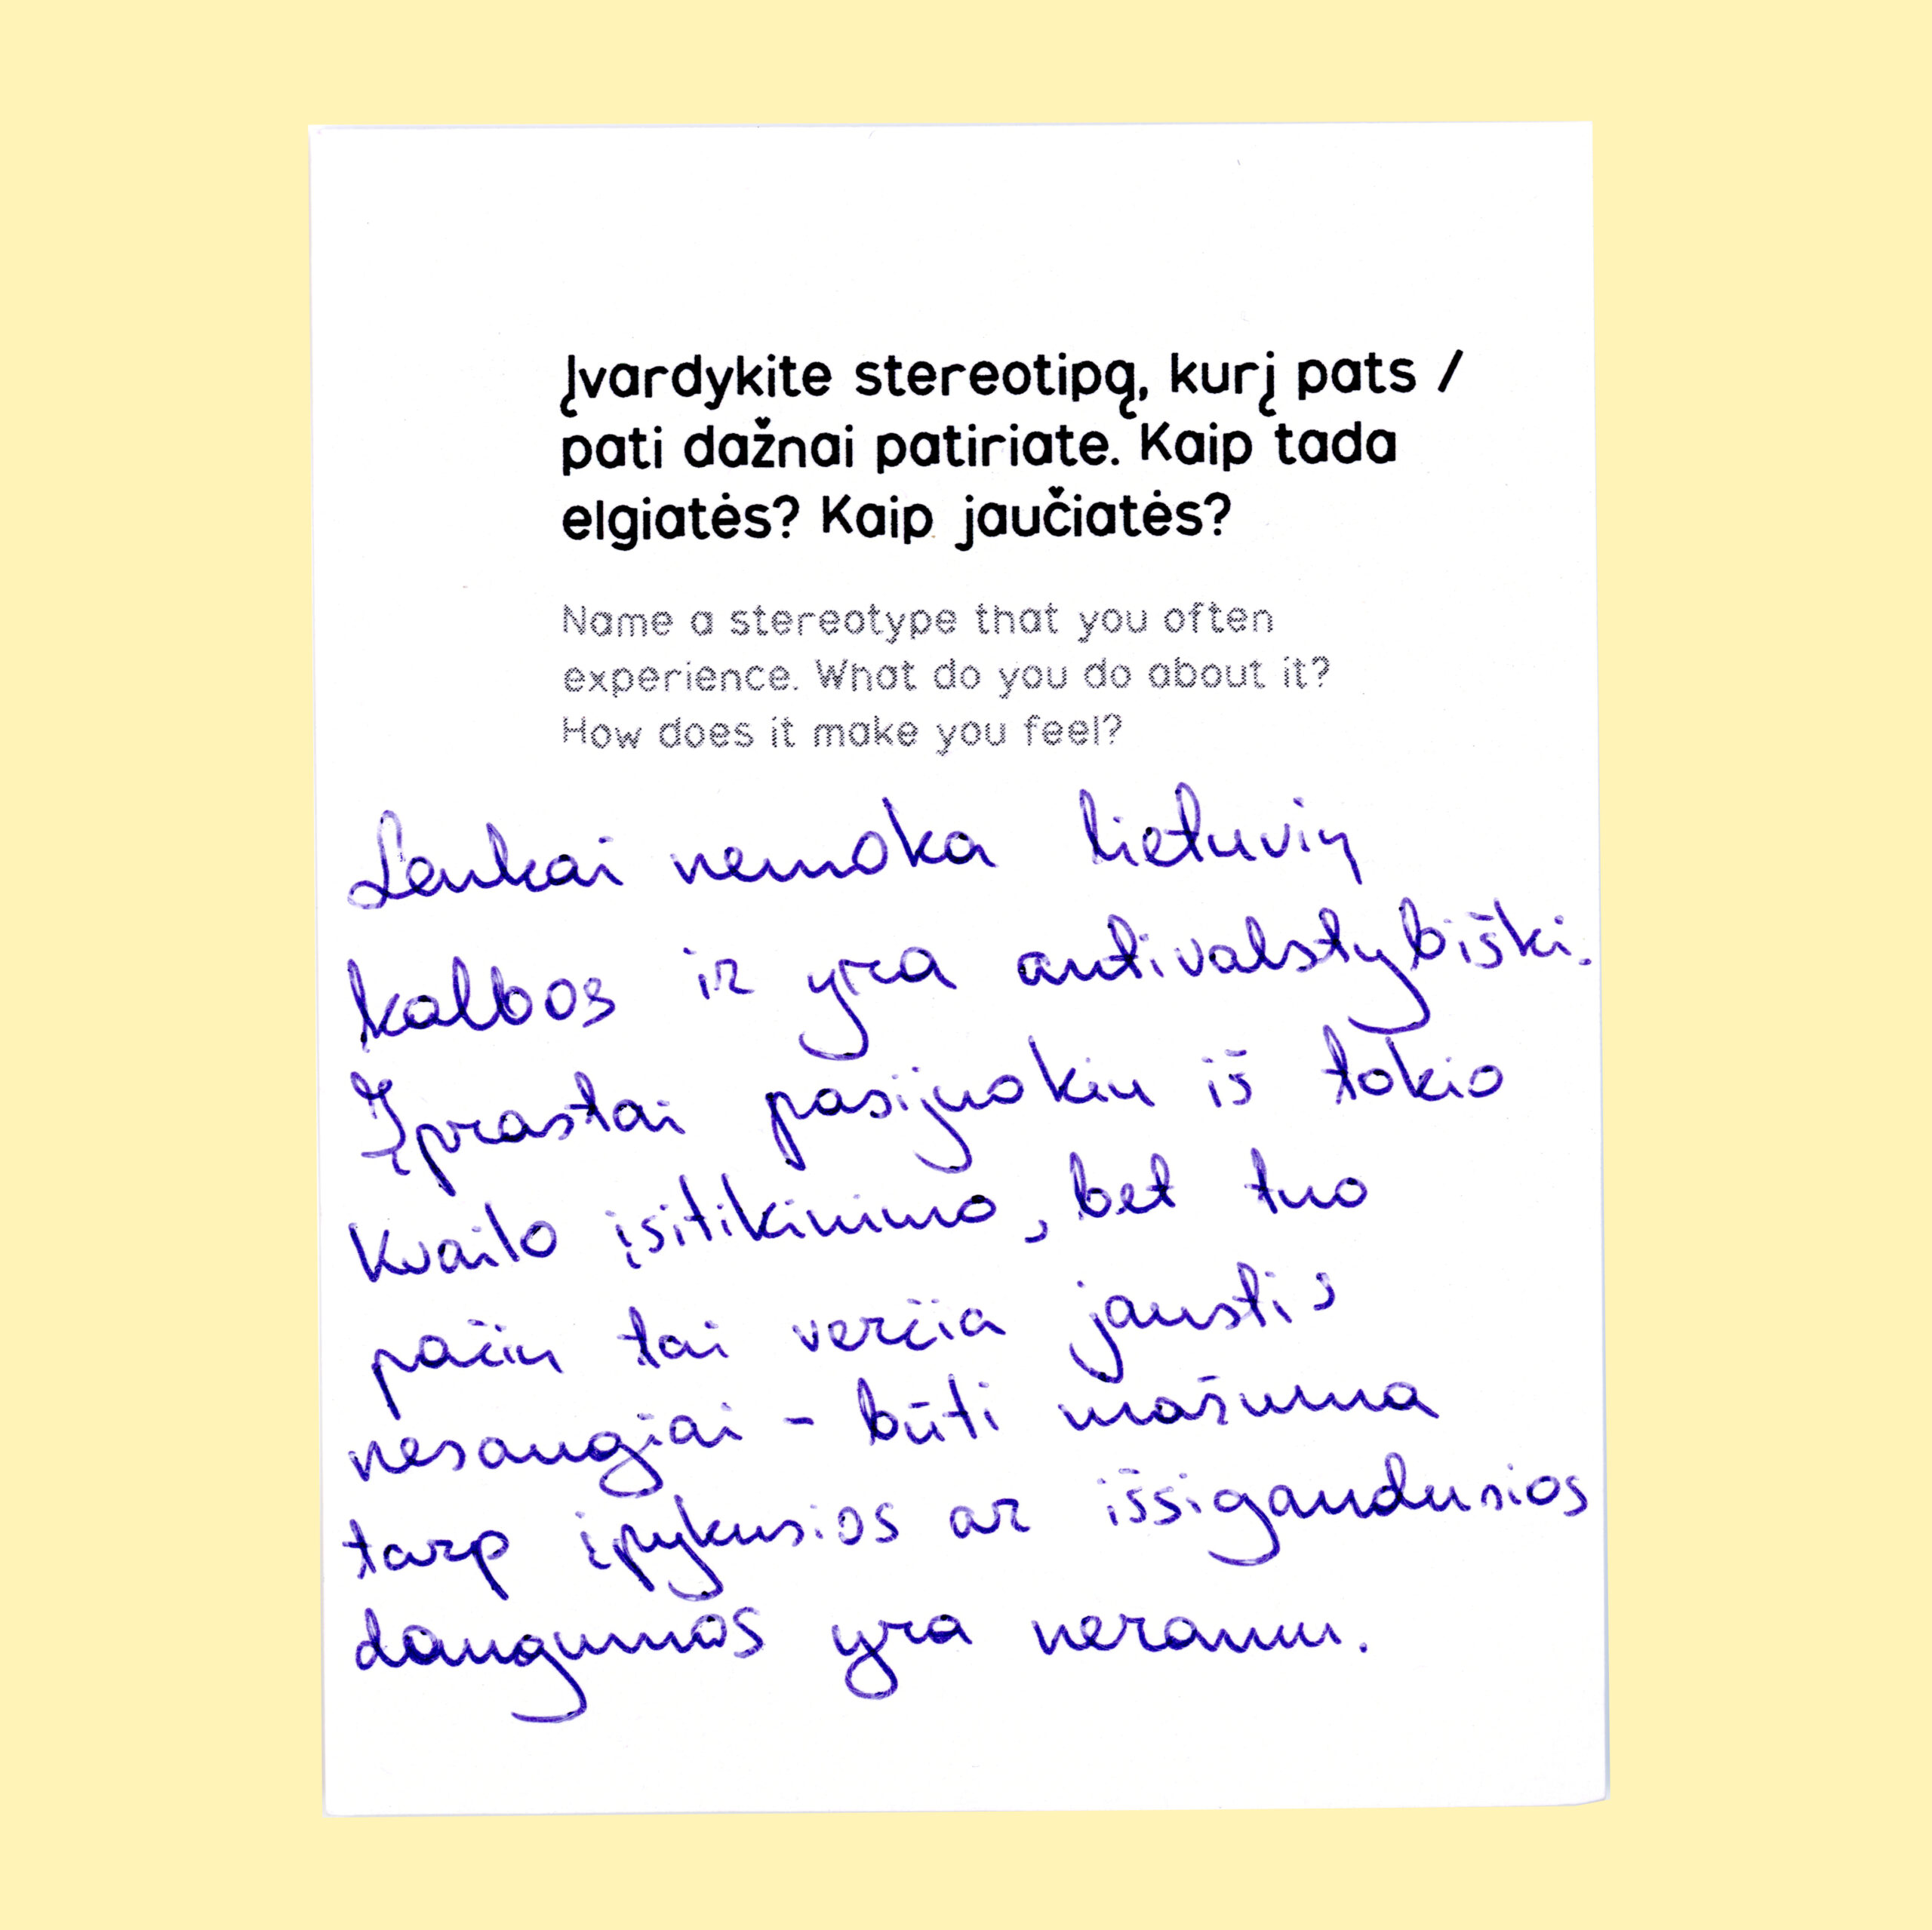 Įvardykite stereotipą, kurį pats /
pati dažnai patiriate. Kaip tada
elgiatės? Kaip jaučiatės?
Name a stereotype that you often
experience. What do you do about it?
How does it make you feel?
Lenkai nemoka lietuvių
kalbos ir yra antivalstybiški.
Įprastai pasijuokiu iš tokio
kvailo įsitikinimo, bet tuo
pačiu tai verčia jaustis
nesaugiai – būti mažuma
tarp įpykusios ar išsigandusios
daugumos yra neramu.